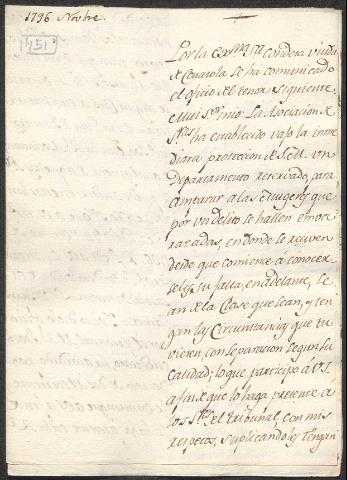 1796 Novbre.
451
Por la Exma. Sra. Condesa Viuda
de
se ha comunicado
el oficio del tenor siguiente.
Mui Sor. mio: La Asociacion de
Sras. ha establecido vajo la inme
diata proteccion de S.M. un
Departamento reservado, para
amparar a las Mugeres que
por un delito se hallen emva
razadas, en donde se reciven
desde que comience à conocer
seles su falta, en adelante, se
an de la Clase que sean, y ten
gan las Circunstancias que tu
vieren, con separacion segun su
calidad; lo que participo à V.S.
a fin de que lo haga presente a
los Sres. del tribunal, con mis
respetos, suplicandoles tengan